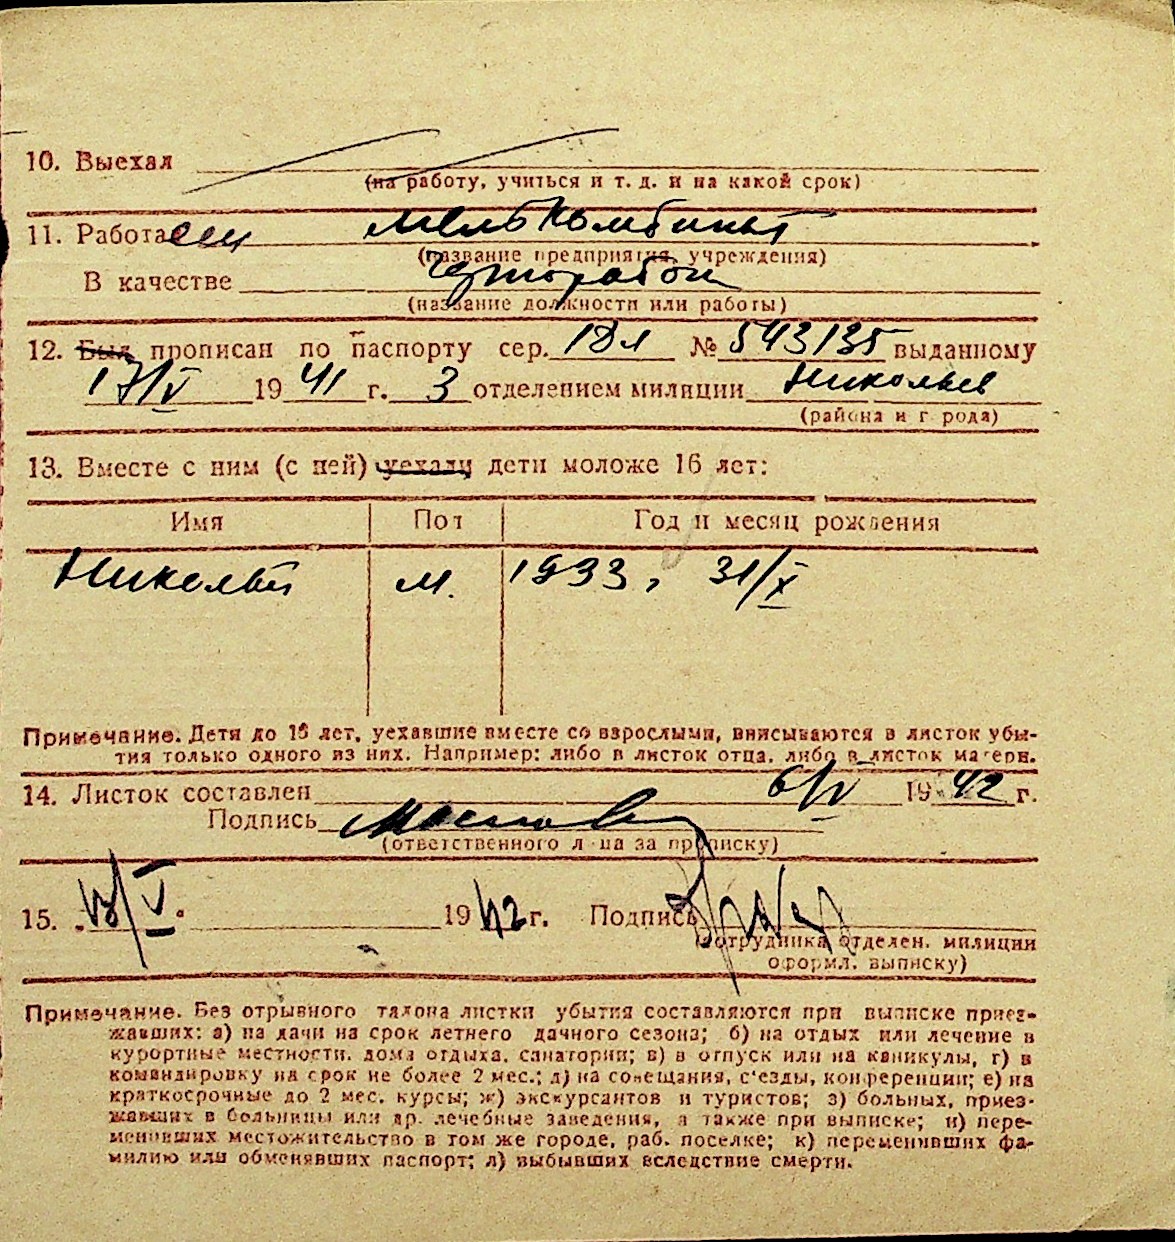 10. Выехал
(на работу, учиться и т. д. и на какой срок)
11. Работает Мелькомбинат
(название предприятия, учреждения)
В качестве
(название должности или работы)
12. Был прописан по паспорту сер. № 543135 выданному
17/V 1941 г. 3 отделением милиции Николаев
(района и г рода)
13. Вместе с ним (с ней) уехали дети моложе 16 лет:
Имя Пол Год и месяц рождения
Николай м. 1933 г 31/X
Примечание. Дети до 16 лет, уехавшие вместе со взрослыми, вписываются в листок убы-
тия только одного из них. Например: либо в листок отца, либо в листок матери.
14. Листок составлен 6/V 1942 г.
Подпись
(ответственного л на за прописку)
15. 13/V 1942 г. Подпись
(сотрудника отделен. милиции
оформл. выписку)
Примечание. Без отрывного талона листки убытия составляются при выписке приез-
жавших: а) на дачи на срок летнего дачного сезона; б) на отдых или лечение в
курортные местности, дома отдыха, санатории; в) в отпуск или на каникулы, г) в
командировку на срок не более 2 мес.; д) на совещания, с'езды, конференции; е) на
краткосрочные до 2 мес. курсы; ж) экскурсантов и туристов; з) больных, приез-
жавших в больницы или др. лечебные заведения, а также при выписке; и) пере-
менивших местожительство в том же городе, раб. поселке; к) переменивших фа-
милию или обменявших паспорт; л) выбывших вследствие смерти.